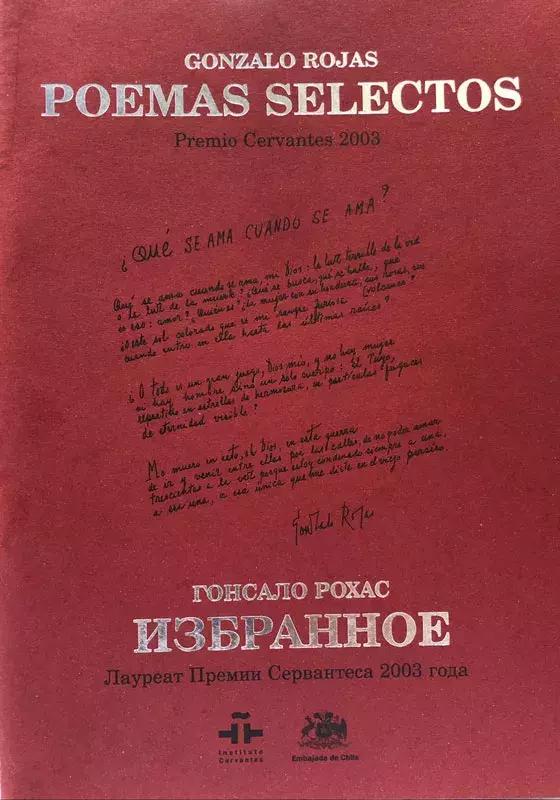 GONZALO ROJAS
POEMAS SELECTOS
Premio Cervantes 2003
¿QUÉ SE AMA CUANDO SE AMA?
¿Qué se ama cuando se ama, mi Dios: la luz terrible de la vida
o la luz de la muerte? ¿Qué se busca, qué se halla, qué
es eso: amor? ¿Quién es? ¿La mujer con su hondura, sus rosas, sus volcanes?
¿o este sol colorado que es mi sangre furiosa
cuando entro en ella hasta las últimas raíces?
¿O todo es un gran juego, Dios mío, y no hay mujer
ni hay hombre sino un solo cuerpo: el tuyo,
repartido en estrellas de hermosura, en partículas fugaces
de eternidad visible?
Me muero en esto, oh Dios, en esta guerra
de ir y venir entre ellas por las calles, de no poder amar
trescientas a la vez, porque estoy condenado siempre a una,
a esa una, a esa única que me diste en el viejo paraíso.
Gonzalo Rojas
ГОНСАЛО РОХАС
ИЗБРАННОЕ
Лауреат Премии Сервантеса 2003 года
Instituto
Cervantes
Embajada de Chile